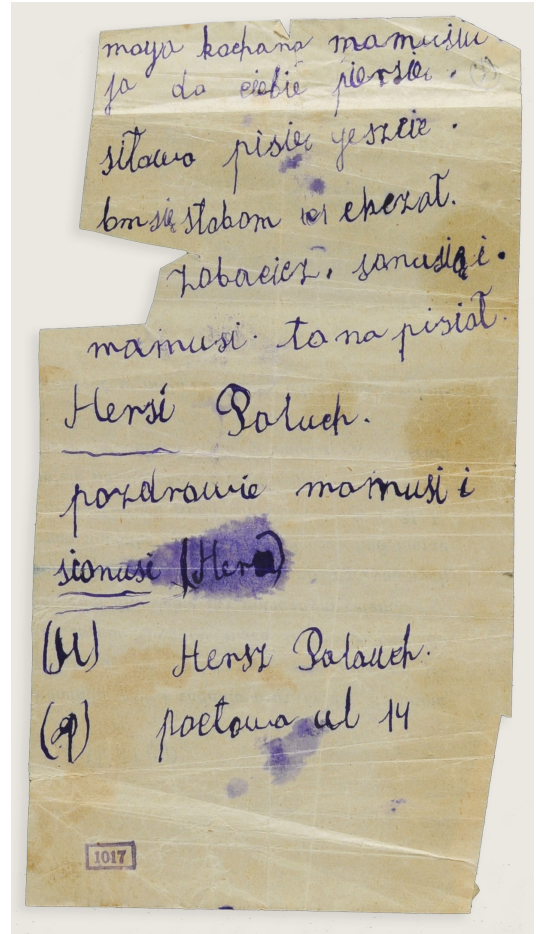 moya kochana mamusiu
ja do ciebie piersie .
sitawo pisie jeszcie .
bm się stabom ekezał.
zobaciez. sanusią i.
mamusi. to na pisiał.
Hersi Paluch.
pozdrowie mamusi i
sionusi (Hers)
(H) Hersz Palauch.
(P) poctowa ul 14
1017